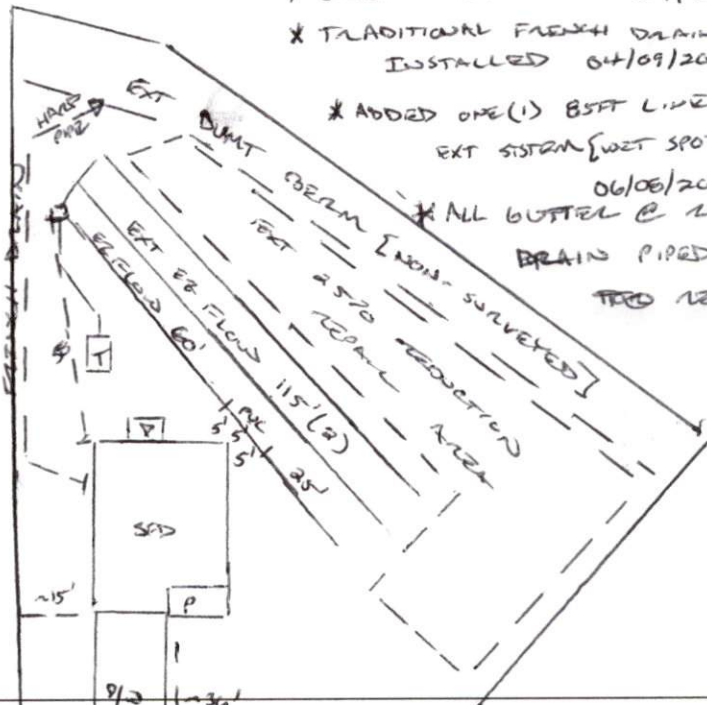 * TRADITIONAL FRENCH DRAIN
INSTALLED 04/09/20
* ADDED ONE(1) 85FT LINE
EXT SYSTEM [WET SPOT
06/08/20
* ALL GUTTER @
DRAIN PIPED
EXT
HARD
PIPE
BERM [NON-SURVEYED]
EXT 25% REDUCTION
REPAIR AREA
EXT EZ FLOW 115'(2)
EZ FLOW 60'
FRENCH DRAIN
T
PVC
5' 5'
5'
25'
D
SFD
~15'
P
P/D